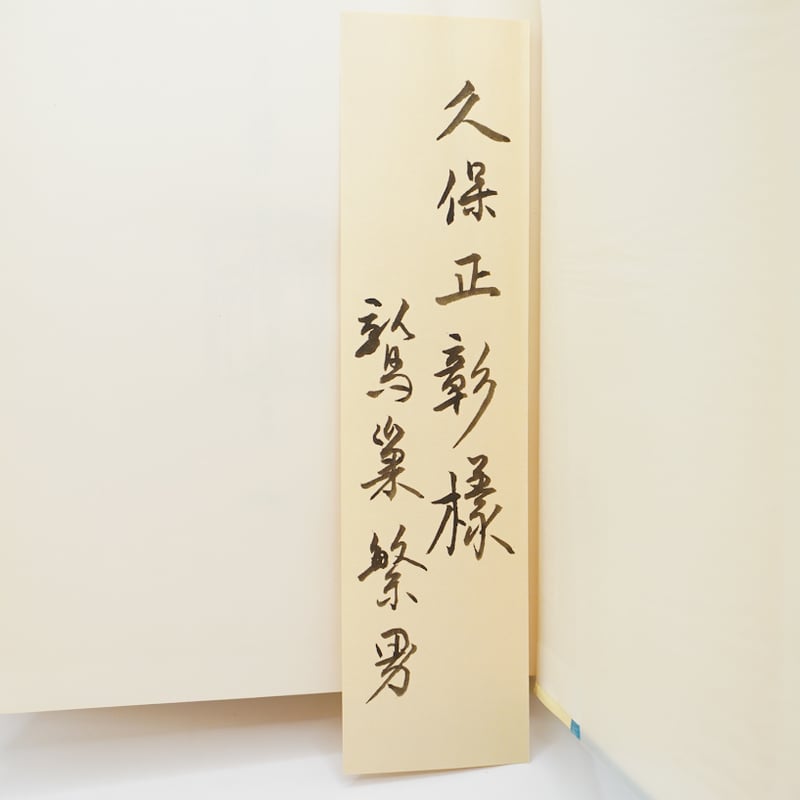 久保正彰樣
鷲巣繁男